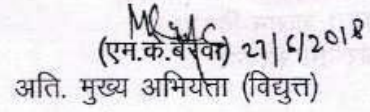 (एम.के.बैरवा) 27/6/2018
अति. मुख्य अभियंता (विद्युत्त)